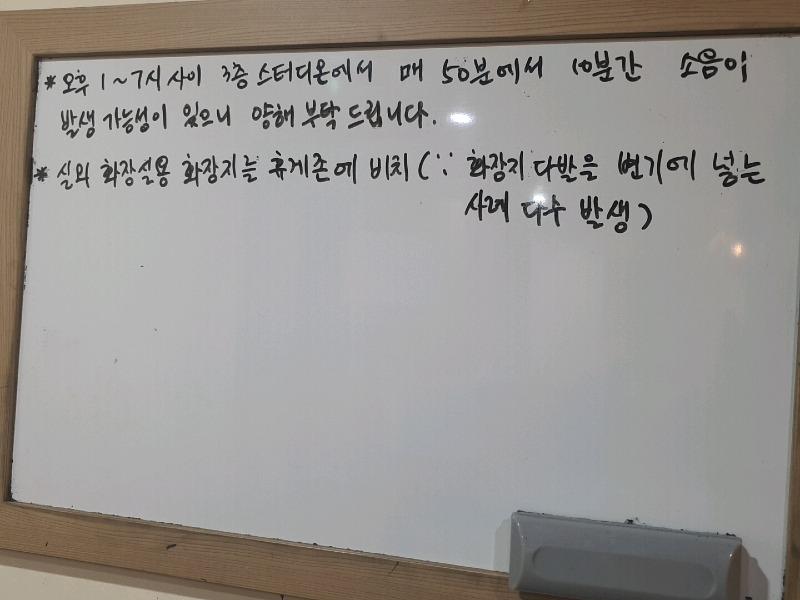 * 오후 1~7시 사이 3층 스터디온에서 매 50분에서 10분간 소음이
발생 가능성이 있으니 양해 부탁 드립니다.
* 실외 화장실용 화장지를 휴게존에 비치 (∵ 화장지 다발을 변기에 넣는
사례 다수 발생)